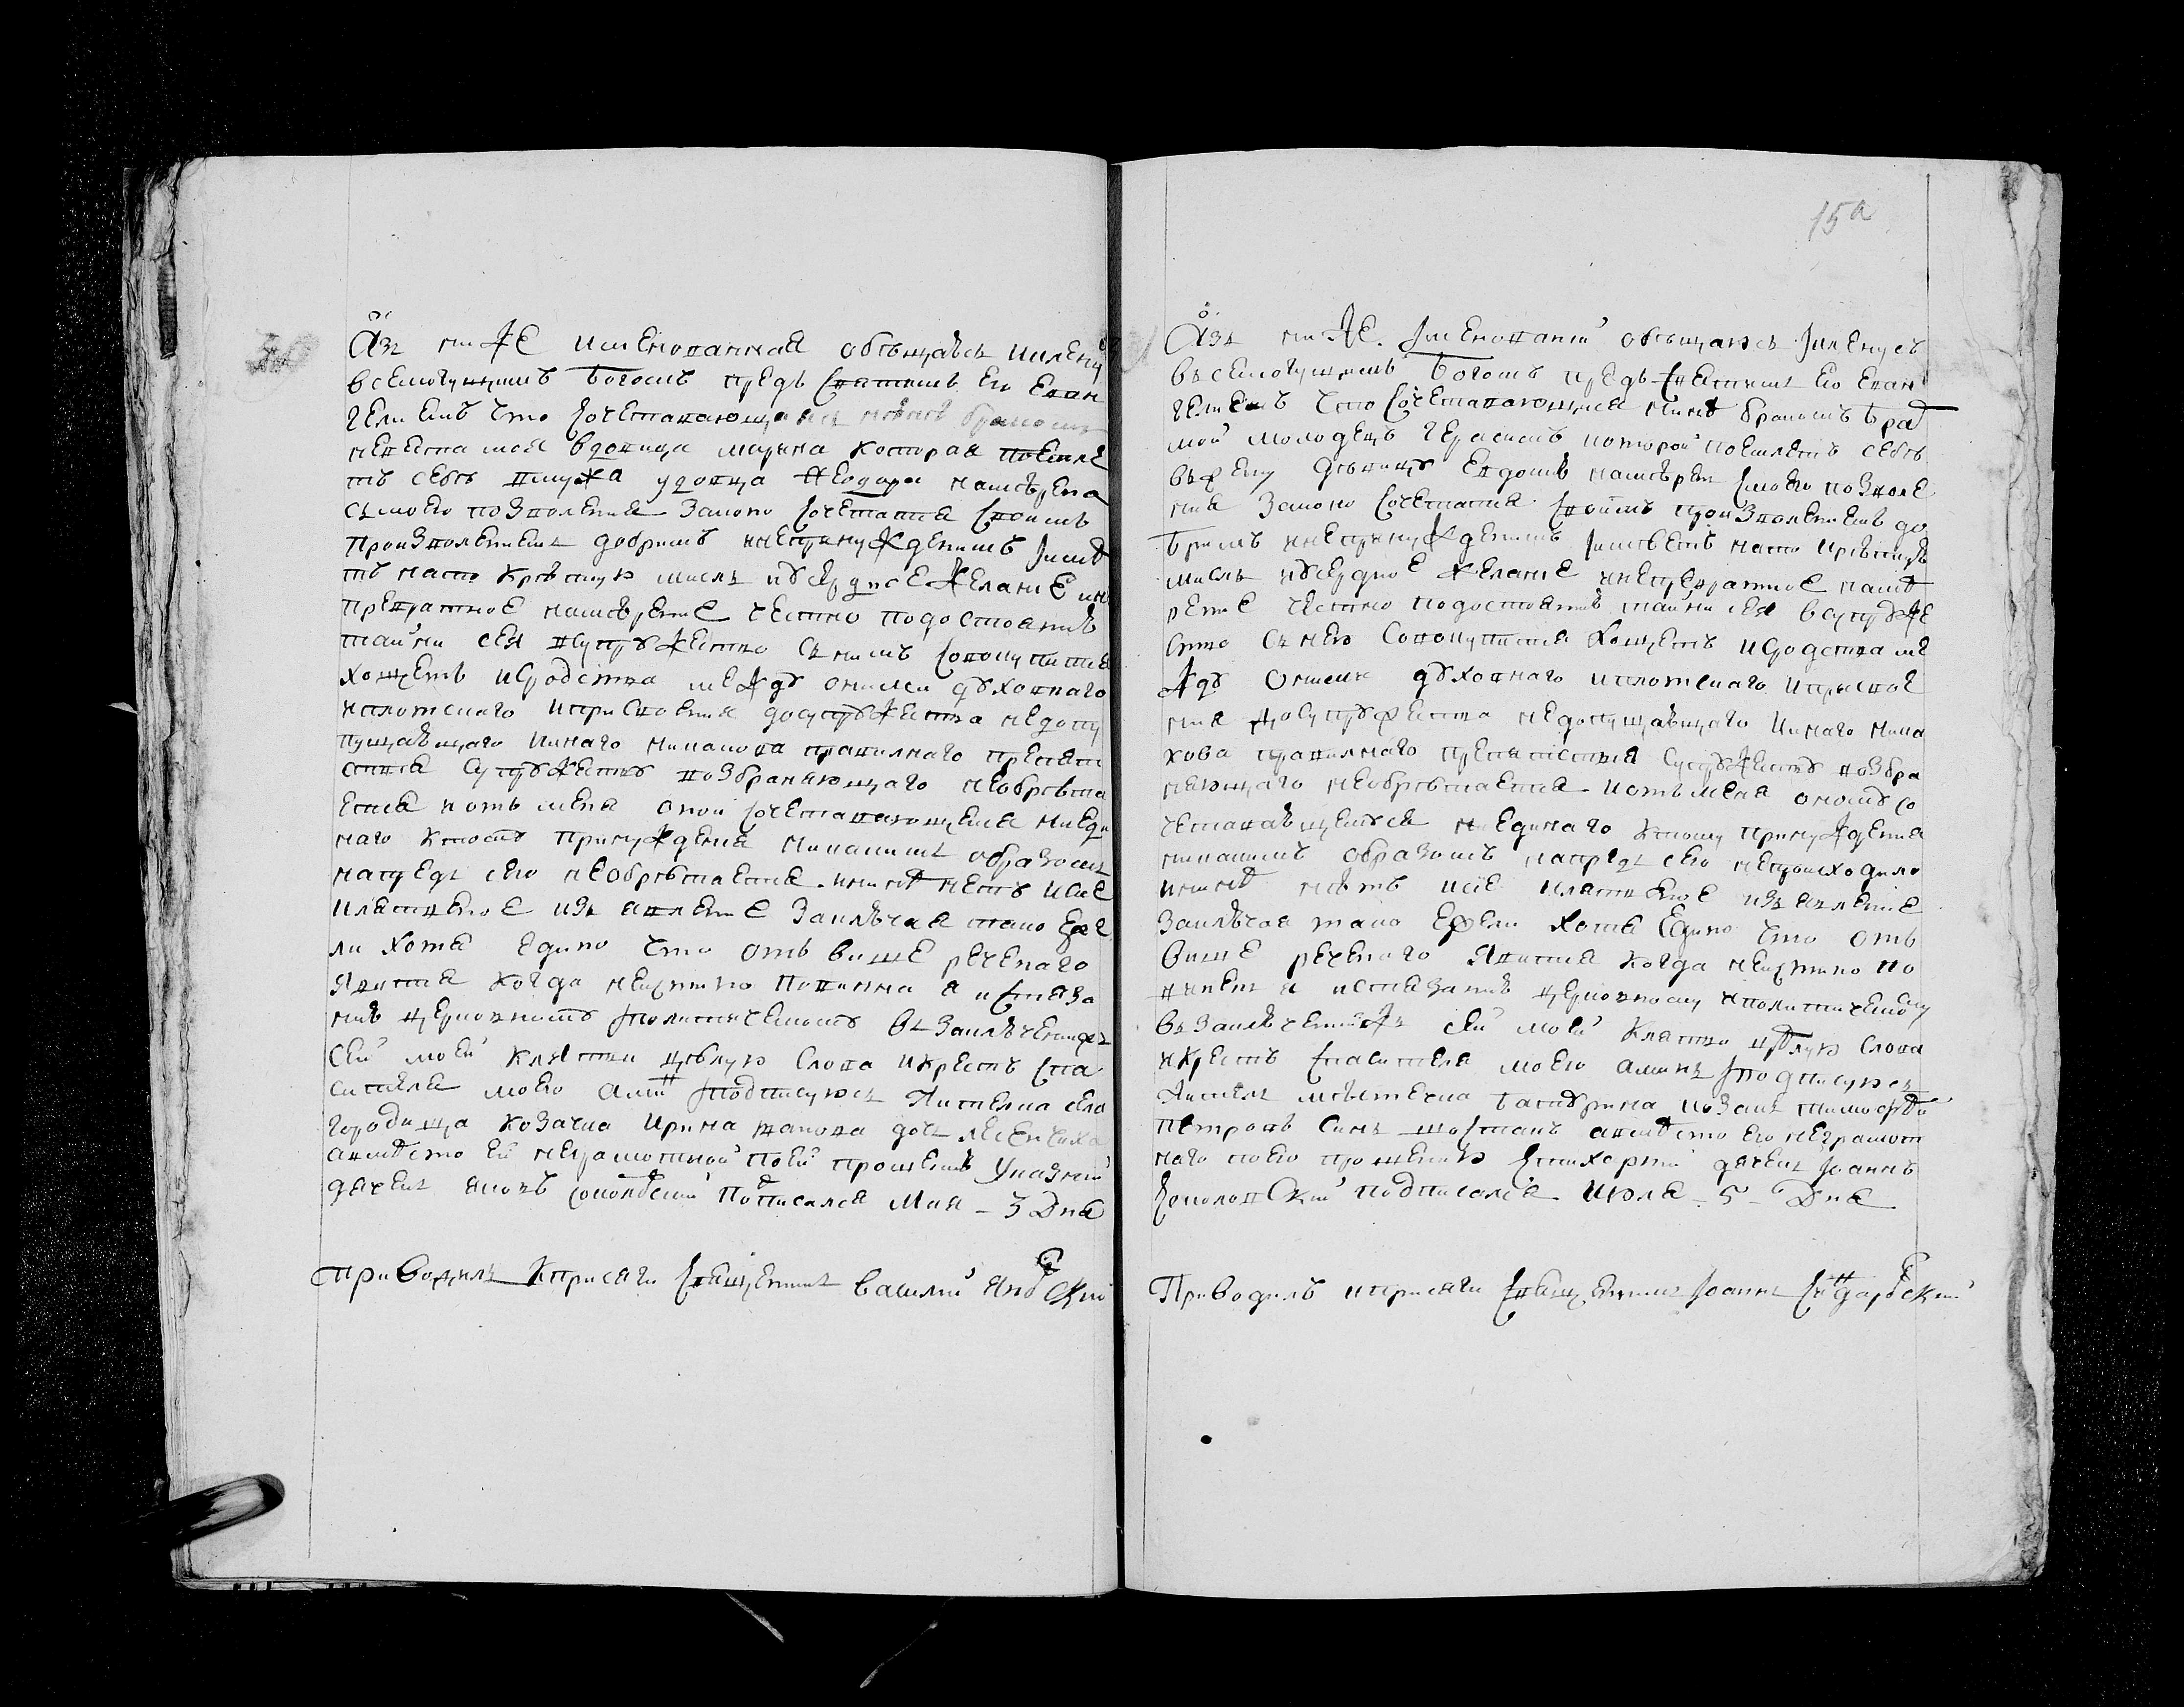 Азъ ниже именованная обѣщаюсь и кленусъ
всемогущимъ Богомъ предъ святимъ его еван
гелиемъ что сочетавающаяся нинѣ бракомъ
невеста моя вдовица марина которая поемле
тъ себѣ в мужа удовца Феодора намѣрена
съ моего позволения законо сочетатся своимъ
произволениемъ добримъ и непринужденимъ имѣе
тъ на то крѣпкую мисль и усердное желание и не
превратное намѣрение честно по достоянию
тайни сея в супружество съ нимъ совокупится
хощетъ и сродства между оними духовнаго
и плотскаго и присвоения до супружества недопу
пущающаго и инаго никакова правилнаго препят
ствия супружеству возбраняющаго не обрѣта
ется и отъ мене оной сочетавающейся ни еди
наго к тому принуждения никакимъ образомъ
напредъ сего не обрѣтается и нинѣ нетъ и сие
клятвеное изъявление заклѣчая тако еже
ли хотя едино что отъ више реченаго
явится когда неистинно повинна я истяза
нию церковному и политическому въ заключениежъ
сей моей клятви цѣлую слова и крестъ спа
сителя моего аминь подписуюсь Жителка села
городища козачка Ирина жакова дочъ лесенчиха
а вмѣсто ей неграмотной по ей прошению указний
дячекъ яковъ соколовский подписался Мая - 3 Дня
Приводилъ к присяги священникъ Василий Яно Ский
15а
Азъ ниже именований обѣщаюсь и кленусъ
всемогущимъ Богомъ предъ святимъ его еван
гелиемъ что сочетавающийся нинѣ бракомъ братъ
мой молодецъ Герасимъ которой поемлетъ себѣ
въ жену дѣвицу Евдокию намѣренъ съ моего позволе
ния законо сочетатся своимъ произволениемъ до
бримъ и непринужденимъ имѣетъ на то крѣпкую
мисль и усердное желание и непревратное намѣ
рение честно по достоянию тайни сея в супруже
ство съ нею совокупится хощетъ и сродства ме
жду оними духовнаго и плотскаго и присвое
ния до супружества недопущающаго и инаго ника
кова правилнаго препятствия супружеству возбра
няющаго не обрѣтается и отъ мене оному со
четавающемуся ни единаго к тому принуждения
никакимъ образомъ напредъ сего непроисходило
и нинѣ нѣтъ и сие клятвеное изъявление
заклѣчая тако ежели хотя едино что отъ
више реченаго явится когда неистинно по
виненъ я истязанию церковному и политическому
въ заключениежъ сей моей клятви цѣлую слова
и крестъ спасителя моего аминь подписуюсь
Житель мѣстечка батурина козакъ тимофей
Петровъ синъ шостакъ а вмѣсто его неграмот
наго по его прошению стихарний дячекъ Иоаннъ
соколовский подписался Июля - 5 - Дня
Приводилъ к присяги священникъ Иоаннъ